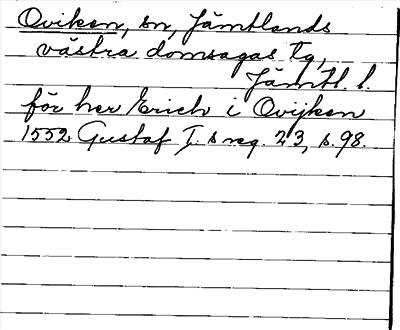 Oviken, sn, Jämtlands
västra domsagas tg,
Jämtl. l.
för her Erich i Ovijken
1552 Gustaf I:s reg. 23, s. 98.